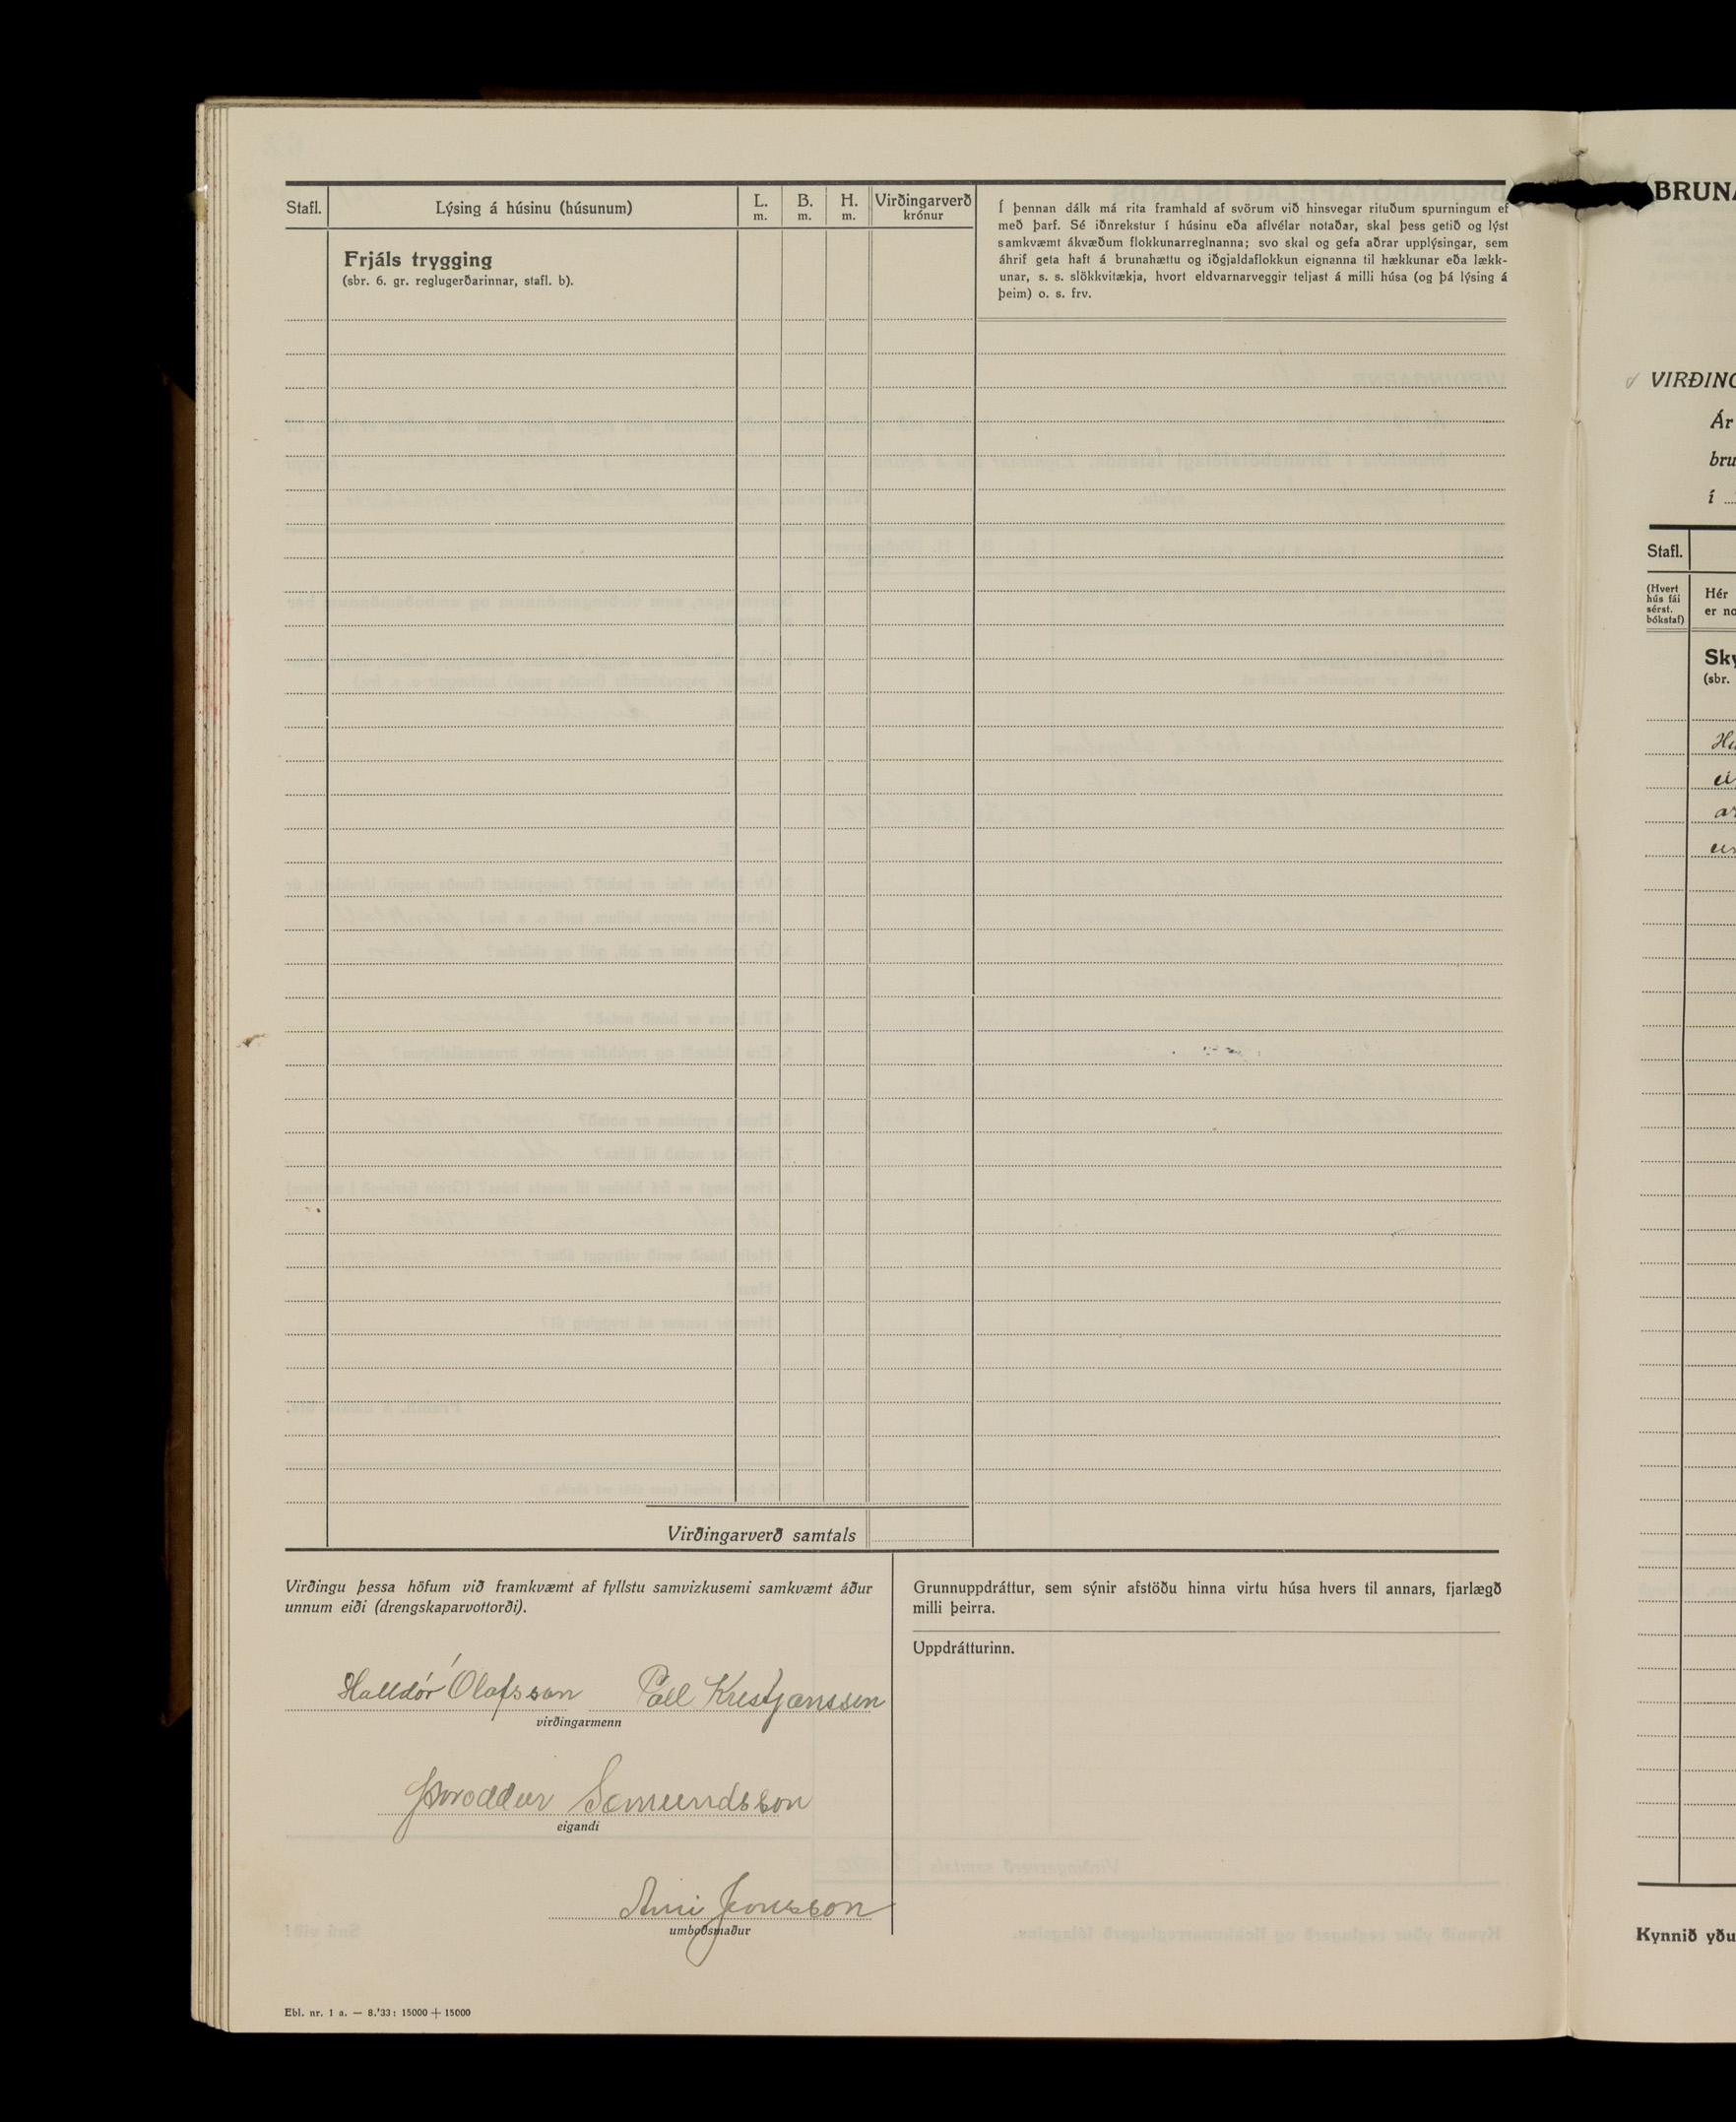 Stafl.
Lýsing á húsinu (húsunum)
L.
m.
B.
m.
H.
m.
Virðingarverð
krónur
Frjáls trygging
(sbr. 6. gr. reglugerðarinnar, stafl. b).
Í þennan dálk má rita framhald af svörum við hinsvegar rituðum spurningum ef
með þarf. Sé iðnrekstur í húsinu eða aflvélar notaðar, skal þess getið og lýst
samkvæmt ákvæðum flokkunarreglnanna; svo skal og gefa aðrar upplýsingar, sem
áhrif geta haft á brunahættu og iðgjaldaflokkun eignanna til hækkunar eða lækk-
unar, s. s. slökkvitækja, hvort eldvarnarveggir teljast á milli húsa (og þá lýsing á
þeim) o. s. frv.
Virðingarverð samtals
Virðingu þessa höfum við framkvæmt af fyllstu samvizkusemi samkvæmt áður
unnum eiði (drengskaparvottorði).
Halldór Ólafsson Páll Kristjánssen
virðingarmenn
Þoroddur Sæmundsson
eigandi
Árni Jónsson
umboðsmaður
Grunnuppdráttur, sem sýnir afstöðu hinna virtu húsa hvers til annars, fjarlægð
milli þeirra.
Uppdrátturinn.
Ebl. nr. 1 a. — 8.'33: 15000 + 15000
BRUNA
VIRÐING
Ár
bru
í
Stafl.
(Hvert
hús fái
sérst.
bókstaf)
Hér
er no
Sky
(sbr.
Kynnið yðu